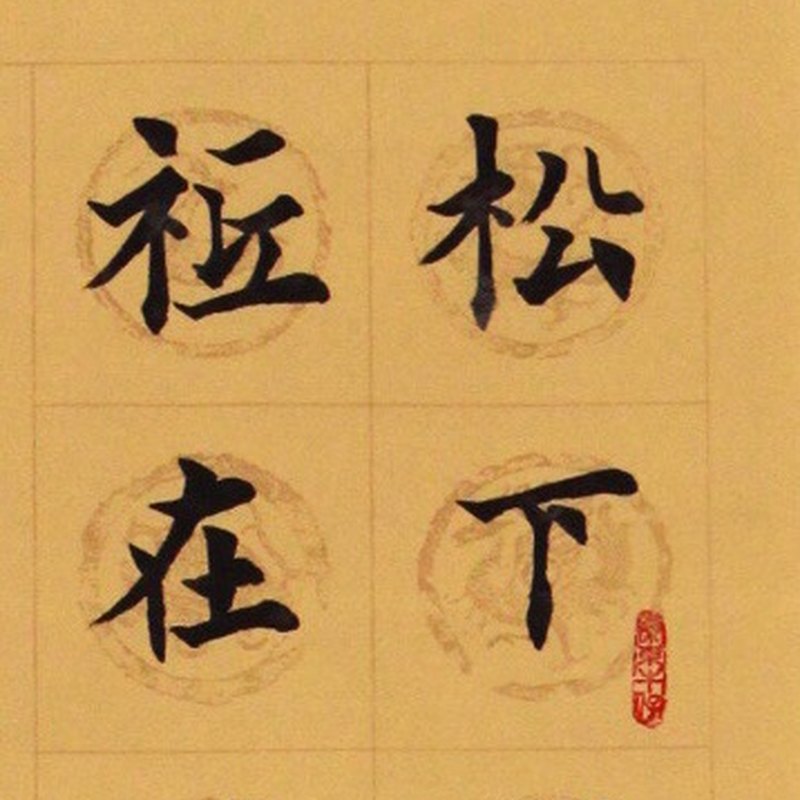 松下
祗在